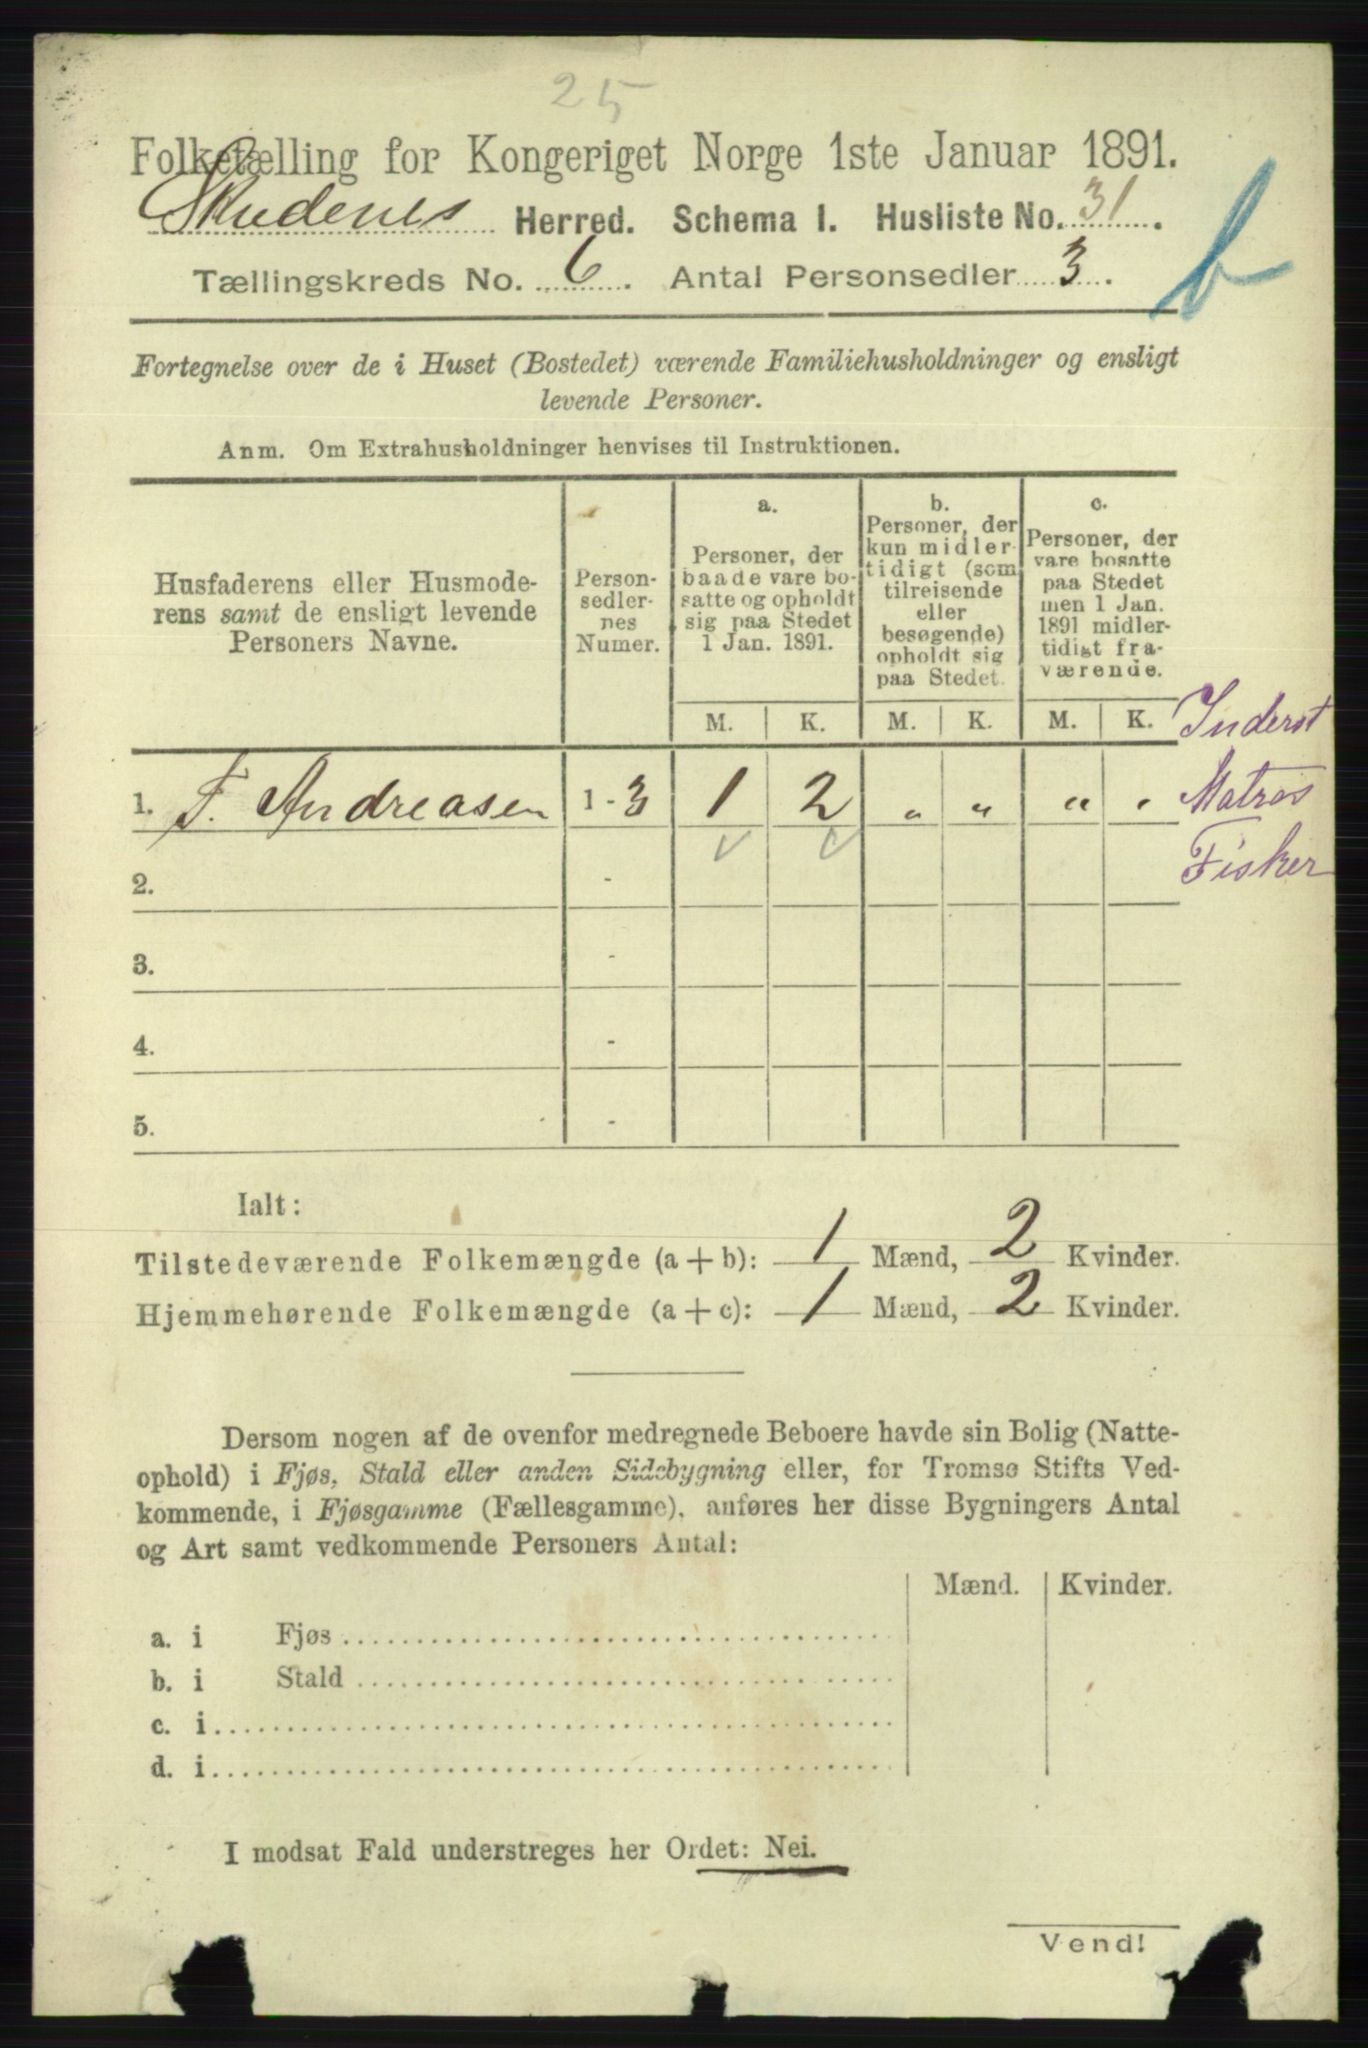 25
Folketælling for Kongeriget Norge 1ste Januar 1891.
Skudenes Herred. Schema I. Husliste No. 31.
b
Tællingskreds No. 6. Antal Personsedler 3.
Fortegnelse over de i Huset (Bostedet) værende Familiehusholdninger og ensligt
levende Personer.
Anm. Om Extrahusholdninger henvises til Instruktionen.
Husfaderens eller Husmode-
rens samt de ensligt levende
Personers Navne.
Person-
sedler-
nes
Numer.
a.
Personer, der
baade vare bo-
satte og opholdt
sig paa Stedet
1 Jan. 1891.
b.
Personer, der
kun midler-
tidigt (som
tilreisende
eller
besøgende)
opholdt sig
paa Stedet.
c.
Personer, der
vare bosatte
paa Stedet
men 1 Jan.
1891 midler-
tidigt fra-
værende.
M. K. M. K. M. K.
Inderst
1. F. Andreasen 1-3 1 2 „ „ „ „ Matros
Fisker
2. -
3. -
4. -
5. -
Ialt:
Tilstedeværende Folkemængde (a + b): 1 Mænd, 2 Kvinder.
Hjemmehørende Folkemængde (a + c): 1 Mænd, 2 Kvinder.
Dersom nogen af de ovenfor medregnede Beboere havde sin Bolig (Natte-
ophold) i Fjøs, Stald eller anden Sidebygning eller, for Tromsø Stifts Ved-
kommende, i Fjøsgamme (Fællesgamme), anføres her disse Bygningers Antal
og Art samt vedkommende Personers Antal:
Mænd. Kvinder.
a. i Fjøs
b. i Stald
c. i
d. i
I modsat Fald understreges her Ordet: Nei.
Vend!